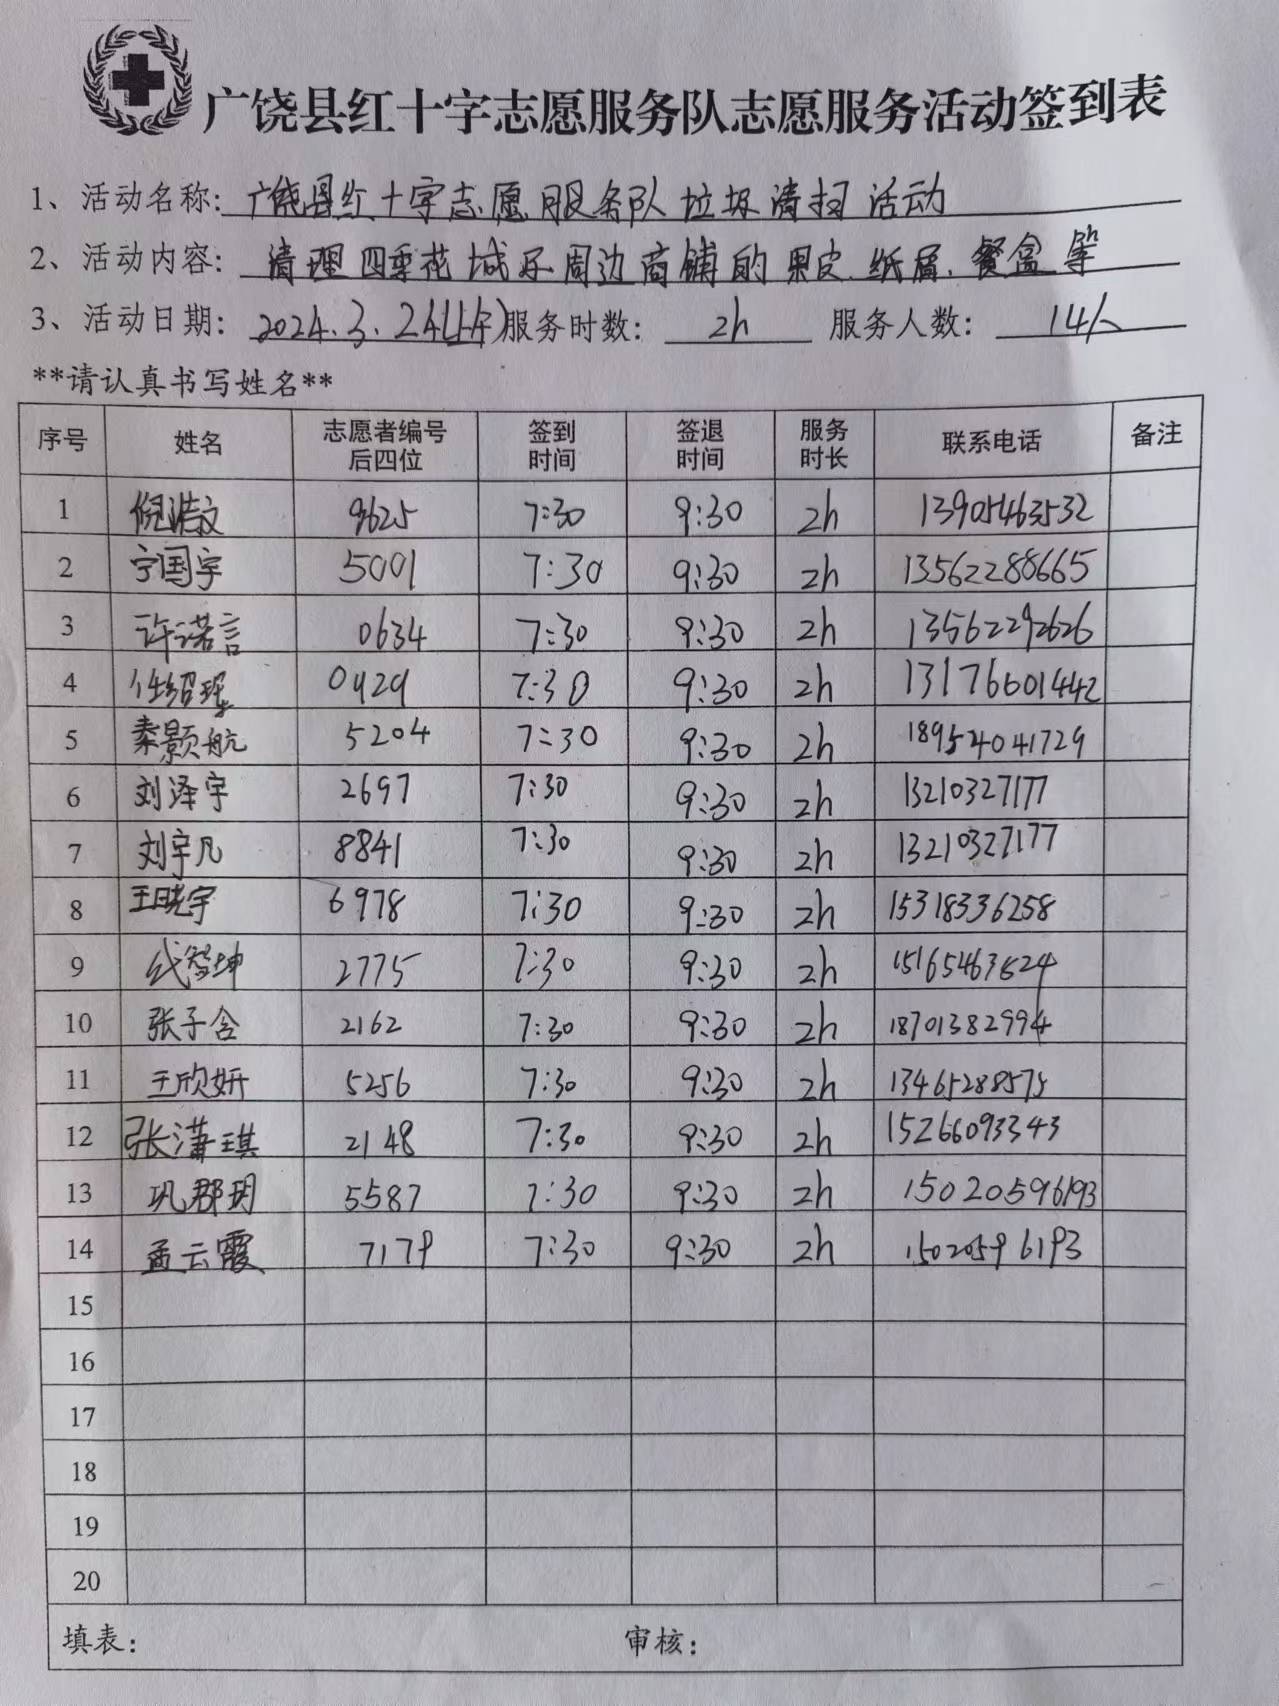 广饶县红十字志愿服务队志愿服务活动签到表
1、活动名称: 广饶县红十字志愿服务队垃圾清扫活动
2、活动内容: 清理四季花城及周边商铺的果皮、纸屑、餐盒等
3、活动日期: 2024.3.24(上午) 服务时数: 2h 服务人数: 14人
**请认真书写姓名**
序号 姓名 志愿者编号后四位 签到时间 签退时间 服务时长 联系电话 备注
1 倪浩文 9625 7:30 9:30 2h 13905463532
2 宁国宇 5001 7:30 9:30 2h 13562288665
3 许诺言 0634 7:30 9:30 2h 13562292626
4 任绍瑶 0429 7:30 9:30 2h 13176601442
5 秦颢航 5204 7:30 9:30 2h 189524041729
6 刘泽宇 2697 7:30 9:30 2h 13210327177
7 刘宇凡 8841 7:30 9:30 2h 13210327177
8 王晓宇 6978 7:30 9:30 2h 15318336258
9 2775 7:30 9:30 2h 15165463624
10 张子含 2162 7:30 9:30 2h 18701382994
11 王欣妍 5256 7:30 9:30 2h 13465288575
12 张潇琪 2148 7:30 9:30 2h 15266093343
13 巩郡玥 5587 7:30 9:30 2h 15020596193
14 孟云霞 7179 7:30 9:30 2h 15020596193
15
16
17
18
19
20
填表: 审核: